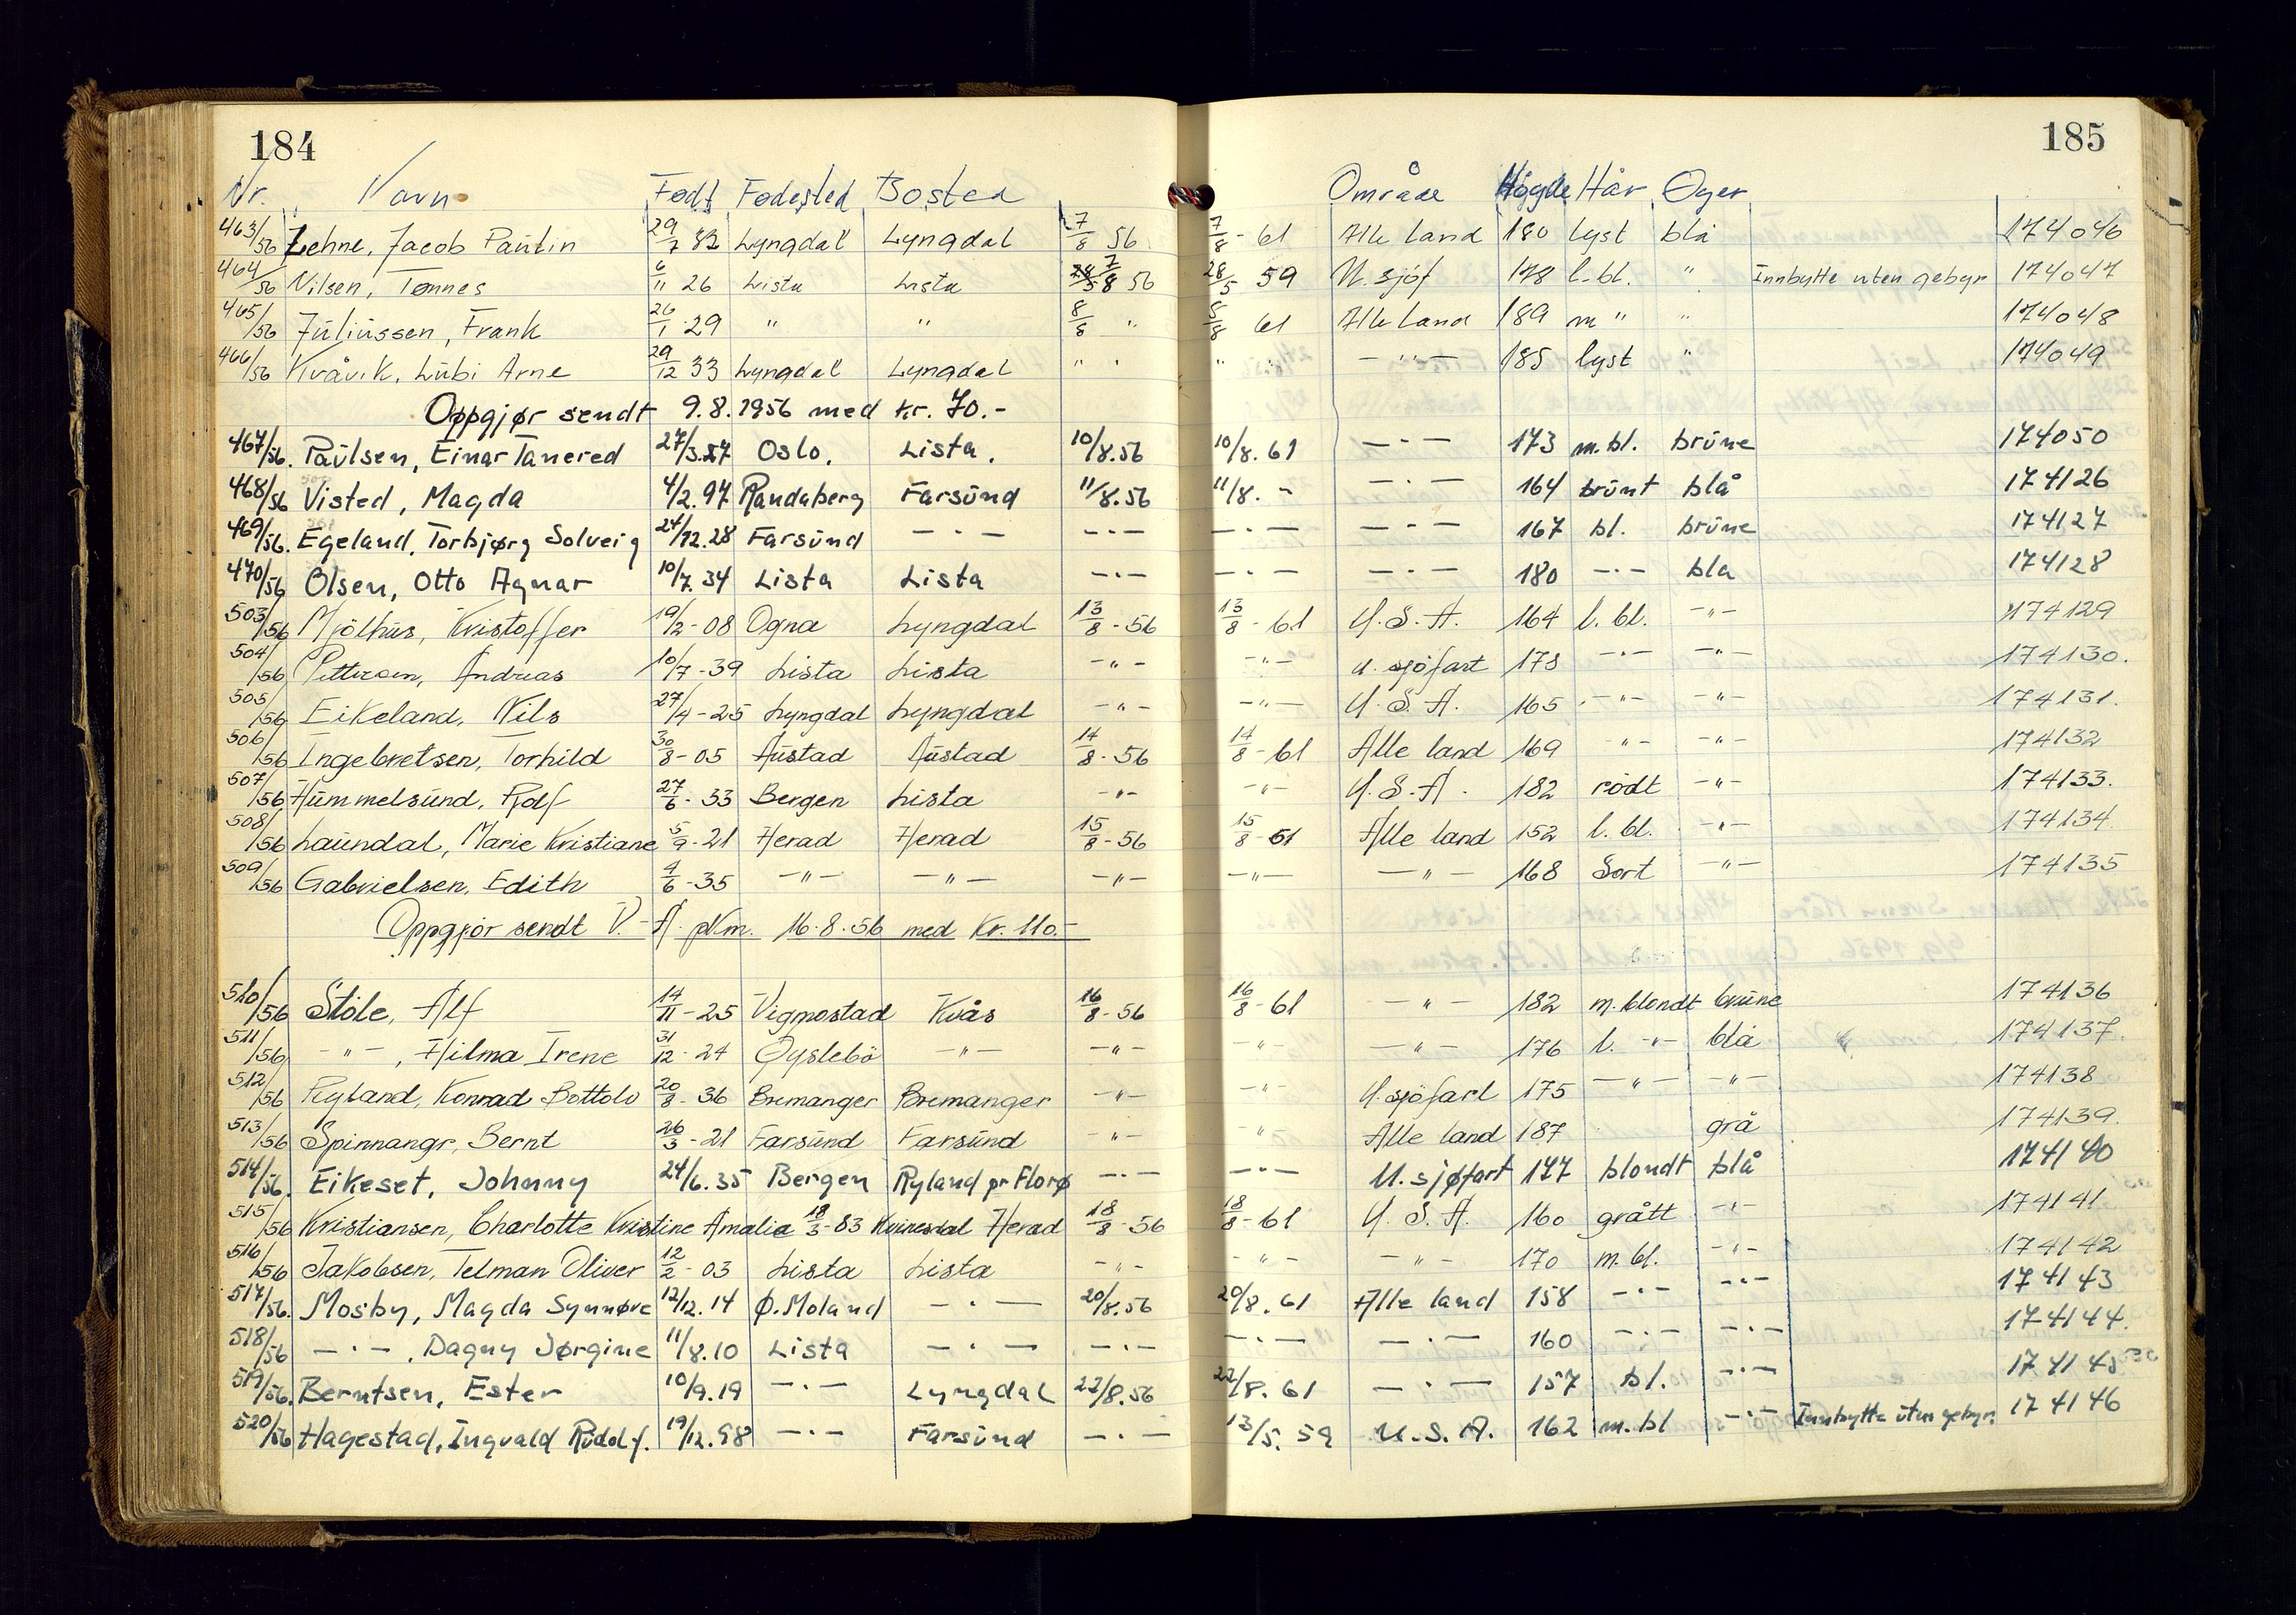 184
185
Nr. Navn Født Fødested Bosted Område Høgde Hår Øyer
463/56 Lehne, Jacob Paulin 29/7 82 Lyngdal Lyngdal 7/8 56 7/8 - 61 Alle land 180 lyst blå 174046
464/56 Nilsen, Tønnes 6/11 26 Lista Lista 7/8 56 28/5 59 U. sjöf 178 l. bl. " Innbytte uten gebyr 174047
465/56 Juliussen, Frank 26/1 29 " " 8/8 " 8/8 61 Alle land 189 m " " 174048
466/56 Kvåvik, Lubi Arne 29/12 33 Lyngdal Lyngdal " " " " — " — 185 lyst " 174049
Oppgjør sendt 9.8.1956 med kr. 70.-
467/56. Paulsen, Einar Tancred 27/3.27 Oslo. Lista. 10/8.56 10/8.61 — " — 173 m.bl. brune 174050
468/56 Visted, Magda 4/2.97 Randaberg Farsund 11/8.56 11/8. - — " — 164 brunt blå 174126
469/56. Egeland, Torbjørg Solveig 24/12.28 Farsund — " — — " — — " — — " — 167 bl. brune 174127
470/56 Olsen, Otto Agnar 10/7.34 Lista Lista — " — — " — — " — 180 — " — bla 174128
503/56 Mjölhus, Kristoffer 19/2 - 08 Ogna Lyngdal 13/8 - 56 13/8 - 61 U.S.A. 164 l. bl. — " — 174129
504/56 Pettersen, Andreas 10/7 - 39 Lista Lista — " — — " — U. sjöfart 178 — " — — " — 174130.
505/56 Eikeland, Nils 27/4 - 25 Lyngdal Lyngdal — " — — " — U.S.A. 165 — " — — " — 174131.
506/56 Ingebretsen, Torhild 30/8 - 05 Austad Austad 14/8 - 56 14/8 - 61 Alle land 169 — " — — " — 174132
507/56 Hummelsund, Rolf 27/6 - 33 Bergen Lista — " — — " — U.S.A. 182 rödt — " — 174133.
508/56 Laundal, Marie Kristiane 5/9 - 21 Herad Herad 15/8 - 56 15/8 - 61 Alle land 152 l. bl. — " — 174134
509/56 Gabrielsen, Edith 4/6 - 35 — " — — " — — " — — " — — " — 168 Sort — " — 174135
Oppgjör sendt V.-A. pkm. 16.8.56 med Kr. 110.-
510/56 Stöle, Alf 14/11 - 25 Vigmostad Kvås 16/8 - 56 16/8 - 61 — " — 182 m. blondt brune 174136
511/56 — " —, Hilma Irene 31/12 - 24 Öyslebö — " — — " — — " — — " — 176 l. — " — blå 174137.
512/56 Ryland, Konrad Bottolv 20/8 - 36 Bremanger Bremanger — " — — " — U.sjöfart 175 — " — — " — 174138
513/56 Spinnangr, Bernt 26/3 - 21 Farsund Farsund — " — — " — Alle land 187 grå 174139.
514/56. Eikeset, Johnny 24/6.35 Bergen Ryland pr Florø — " — — " — U. sjøfart 177 blondt blå 174140
515/56 Kristiansen, Charlotte Kristine Amalie 18/3 - 83 Kvinesdal Herad 18/8 - 56 18/8 - 61 U.S.A. 160 grått — " — 174141
516/56 Jakobsen, Telman Oliver 12/2 - 03 Lista Lista — " — — " — — " — 170 m. bl. — " — 174142
517/56. Mosby, Magda Synnøve 12/12.14 Ø. Moland — " — 20/8.56 20/8.61 Alle land 158 — " — — " — 174143
518/56 — " —, Dagny Jørgine 11/8.10 Lista — " — — " — — " — — " — 160 — " — — " — 174144.
519/56. Berntsen, Ester 10/9.19 — " — Lyngdal 22/8.56 22/8.61 — " — 157 bl. — " — 174145
520/56 Hagestad, Ingvald Rudolf. 19/12.98 — " — Farsund — " — 13/5.59 U.S.A. 162 m. bl — " — Innbytte uten gebyr. 174146